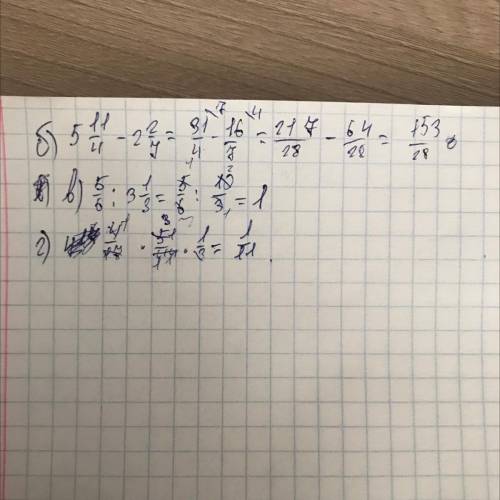 б) 5 11/4 - 2 2/7 = 31/4 - 16/7 = 217/28 - 64/28 = 153/28
в) 5/6 : 3 1/3 = 5/6 : 10/3 = 1
г) · · 1/3 = 1/11